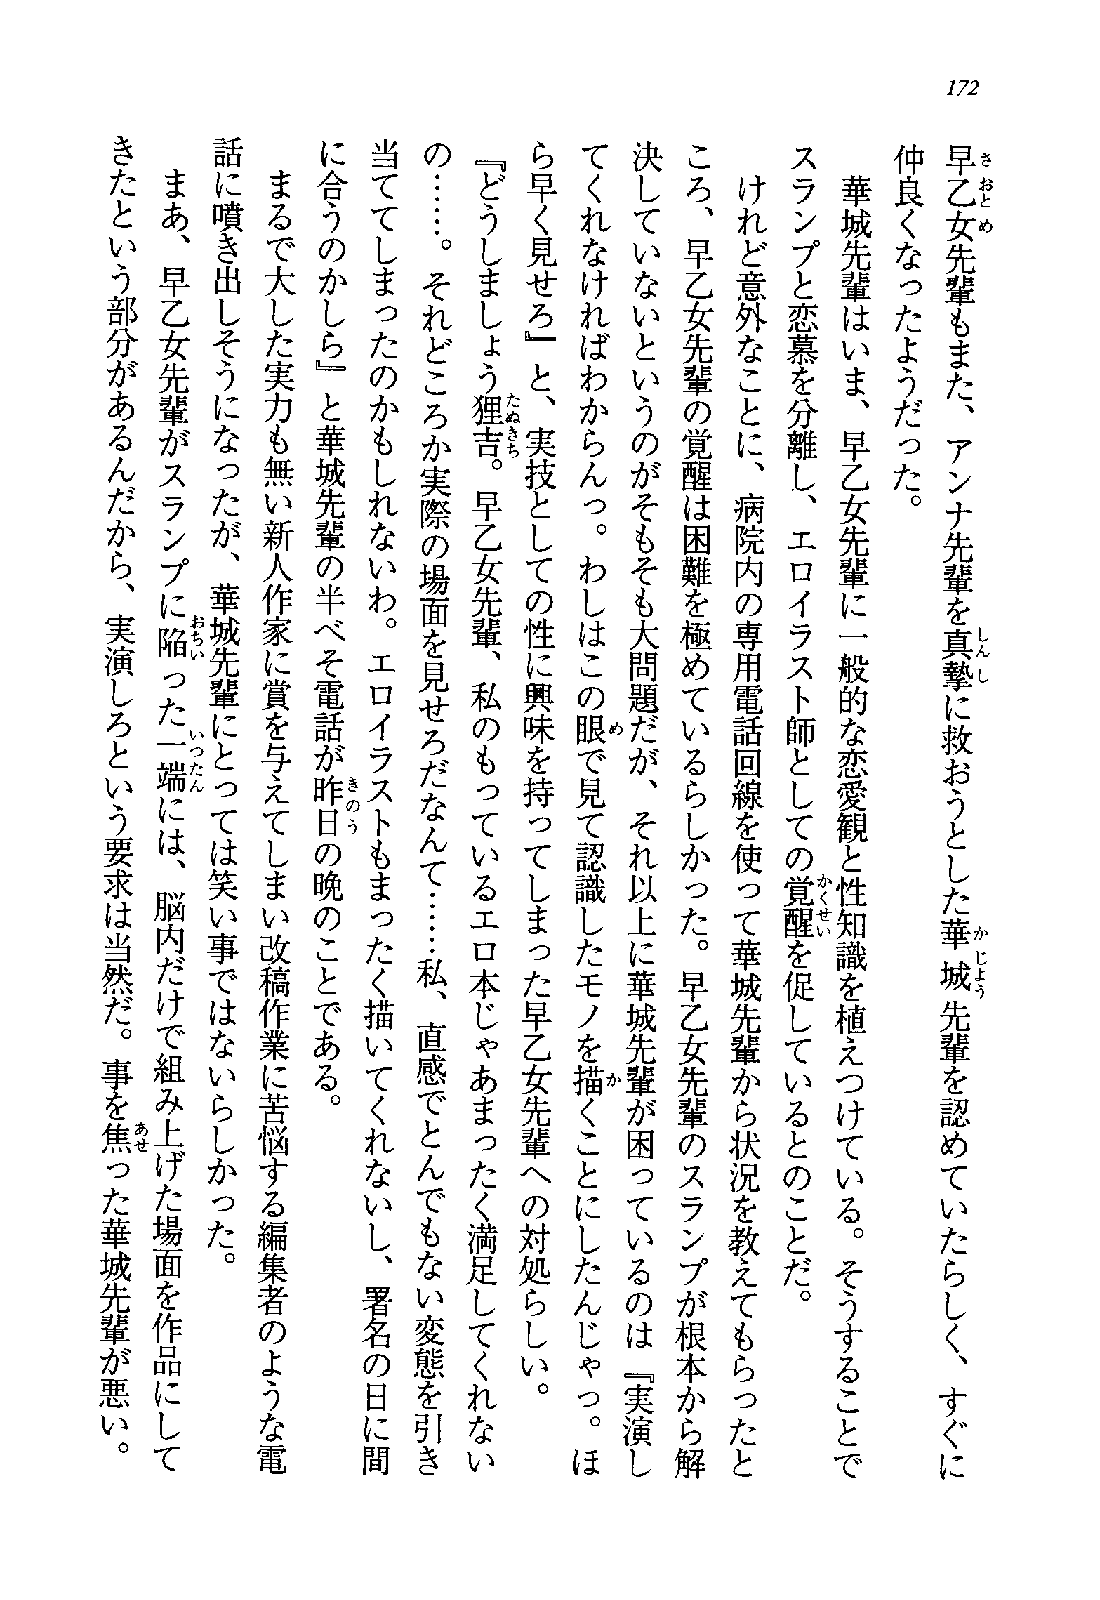 172
早乙女先輩もまた、アンナ先輩を真摯に救おうとした華城先輩を認めていたらしく、すぐに
仲良くなったようだった。
華城先輩はいま、早乙女先輩に一般的な恋愛観と性知識を植えつけている。そうすることで
スランプと恋慕を分離し、エロイラスト師としての覚醒を促しているとのことだ。
けれど意外なことに、病院内の専用電話回線を使って華城先輩から状況を教えてもらったと
ころ、早乙女先輩の覚醒は困難を極めているらしかった。早乙女先輩のスランプが根本から解
決していないというのがそもそも大問題だが、それ以上に華城先輩が困っているのは『実演し
てくれなければわからんっ。わしはこの眼で見て認識したモノを描くことにしたんじゃっ。ほ
ら早く見せろ』と、実技としての性に興味を持ってしまった早乙女先輩への対処らしい。
『どうしましょう狸吉。早乙女先輩、私のもっているエロ本じゃあまったく満足してくれない
の……。それどころか実際の場面を見せろだなんて……私、直感でとんでもない変態を引き
当ててしまったのかもしれないわ。エロイラストもまったく描いてくれないし、署名の日に間
に合うのかしら』と華城先輩の半べそ電話が昨日の晩のことである。
まるで大した実力も無い新人作家に賞を与えてしまい改稿作業に苦悩する編集者のような電
話に噴き出しそうになったが、華城先輩にとっては笑い事ではないらしかった。
まあ、早乙女先輩がスランプに陥った一端には、脳内だけで組み上げた場面を作品にして
きたという部分があるんだから、実演しろという要求は当然だ。事を焦った華城先輩が悪い。